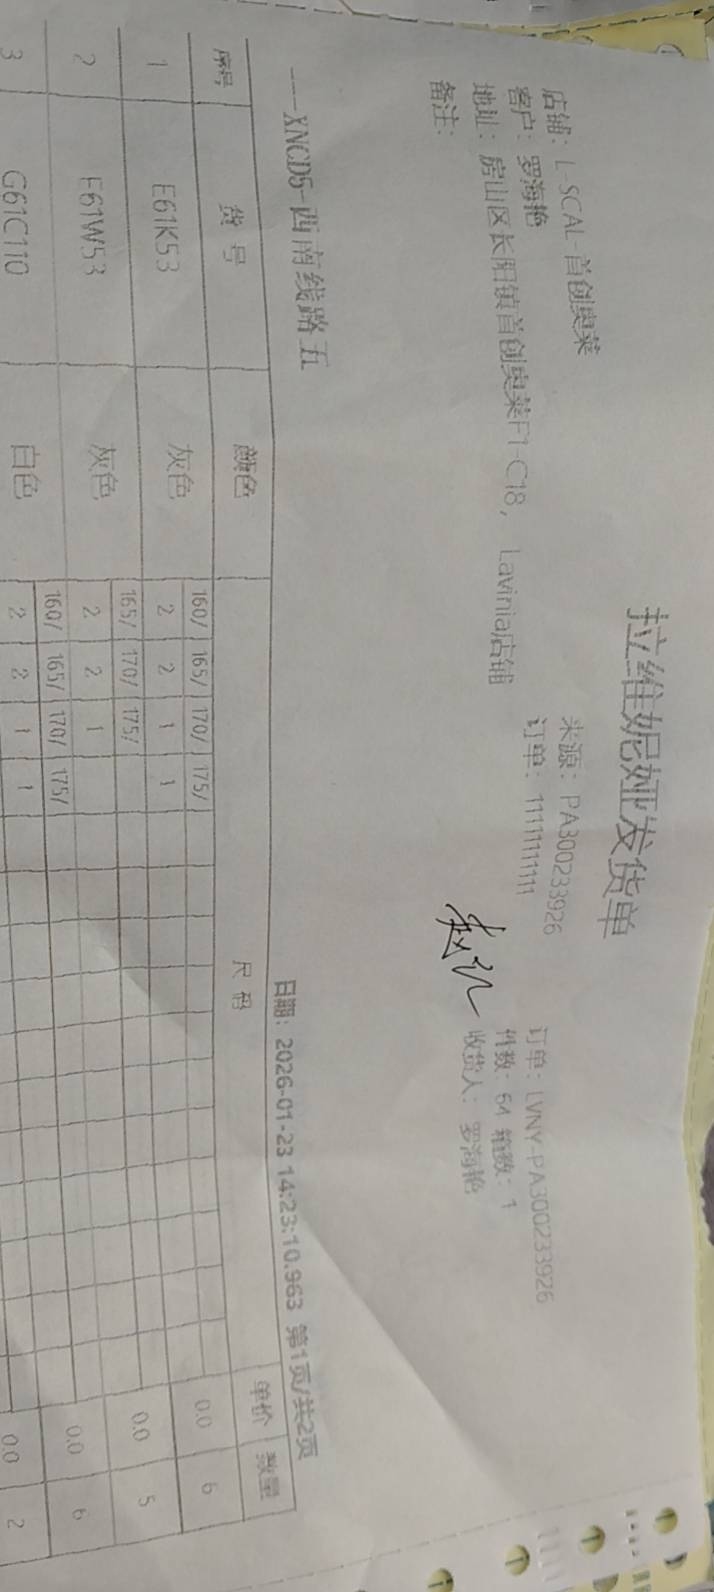 拉维妮娅发货单
店铺：L-SCAL-首创奥莱 来源：PA300233926 订单：LVNY-PA300233926
客户：罗海艳 订单：11111111111 件数：64 箱数：1
地址：房山区长阳镇首创奥莱F1-C18， Lavinia店铺 收货人：罗海艳
备注：
---XNCD5-西南线路五 日期：2026-01-23 14:23:10.963 第1页/共2页
序号 货号 颜色 尺码 单价 数量
160/ 165/ 170/ 175/
1 E61K53 灰色 2 2 1 1 0.0 6
165/ 170/ 175/
2 E61W53 灰色 2 2 1 0.0 5
160/ 165/ 170/ 175/
3 G61C110 白色 2 2 1 1 0.0 6
0.0 2